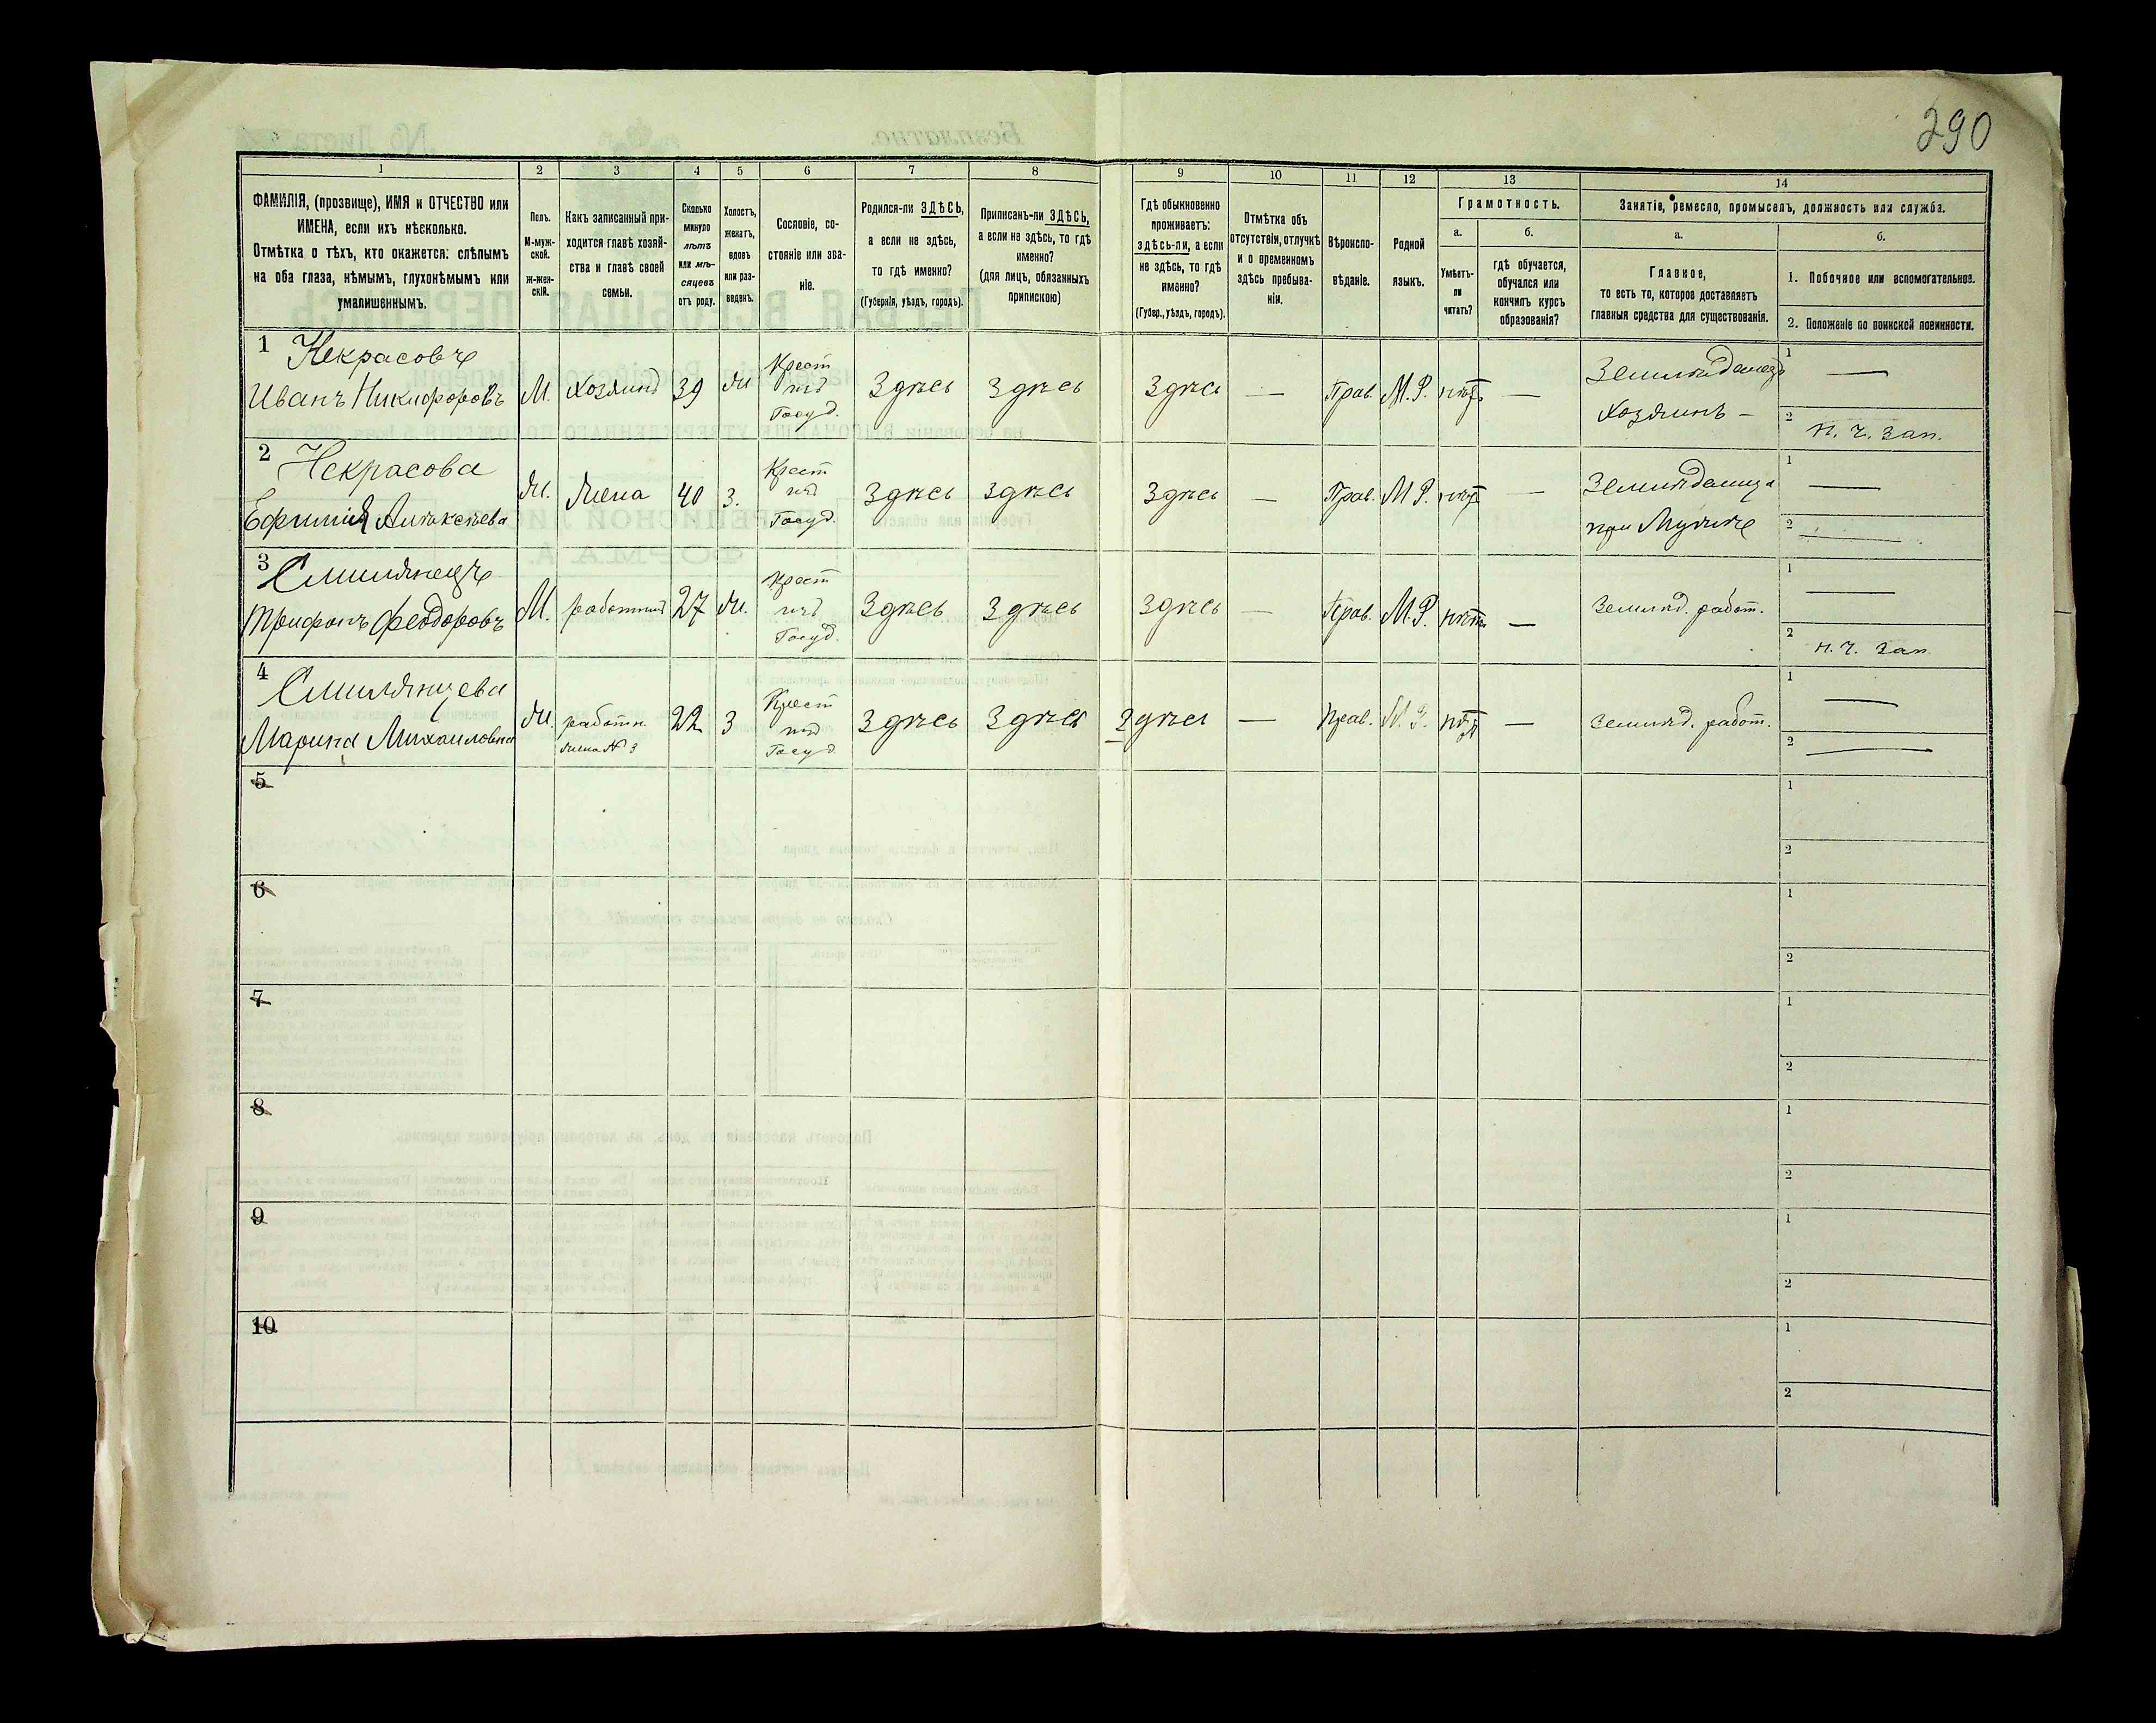 290
1
2
3
4
5
6
7
8
9
10
11
12
13
14
ФАМИЛІЯ, (прозвище), ИМЯ и ОТЧЕСТВО или
ИМЕНА, если ихъ нѣсколько.
Отмѣтка о тѣхъ, кто окажется: слѣпымъ
на оба глаза, нѣмымъ, глухонѣмымъ или
умалишеннымъ.
Полъ.
М-муж-
ской.
ж-жен-
скій.
Какъ записанный при-
ходится главѣ хозяй-
ства и главѣ своей
семьи.
Сколько
минуло
лѣтъ
или мѣ-
сяцевъ
отъ роду.
Холостъ,
женатъ,
вдовъ
или раз-
веденъ.
Сословіе, со-
стояніе или зва-
ніе.
Родился-ли ЗДѢСЬ,
а если не здѣсь,
то гдѣ именно?
(Губернія, уѣздъ, городъ).
Приписанъ-ли ЗДѢСЬ,
а если не здѣсь, то гдѣ
именно?
(для лицъ, обязанныхъ
припискою)
Гдѣ обыкновенно
проживаетъ:
здѣсь-ли, а если
не здѣсь, то гдѣ
именно?
(Губер., уѣздъ, городъ).
Отмѣтка объ
отсутствіи, отлучкѣ
и о временномъ
здѣсь пребыва-
ніи.
Вѣроиспо-
вѣданіе.
Родной
языкъ.
Грамотность.
а.
Умѣетъ-
ли
читать?
б.
гдѣ обучается,
обучался или
кончилъ курсъ
образованія?
Занятіе, ремесло, промыселъ, должность или служба.
а.
Главное,
то есть то, которое доставляетъ
главныя средства для существованія.
б.
1. Побочное или вспомогательное.
2. Положеніе по воинской повинности.
1 Некрасовъ
Иванъ Никифоровъ
М. Хозяинъ 39 ж
Крест
изъ
Госуд.
Здѣсь Здѣсь Здѣсь — Прав. М.Р. нѣтъ —
Земледѣлецъ
Хозяинъ —
1 —
2 н. ч. зап.
2 Некрасова
Ефимія Алексѣева
ж. жена 40 з.
Крест
изъ
Госуд.
Здѣсь здѣсь Здѣсь — Прав. М.Р. нѣтъ —
Земледѣлица
при Мужѣ
1 —
2 —
3 Смилянецъ
Трифонъ Феодоровъ
М. работникъ 27 ж.
Крест
изъ
Госуд.
Здѣсь Здѣсь Здѣсь — Прав. М.Р. нѣтъ —
Землед. работ.
1 —
2 н. ч. зап
4 Смилянцева
Марина Михаиловна
ж. работн.
жена № 3
22 з
Крест
изъ
Госуд
Здѣсь Здѣсь Здѣсь — Прав. М.Р. нѣтъ —
Землед. работ.
1 —
2 —
5
1
2
6
1
2
7
1
2
8
1
2
9
1
2
10
1
2